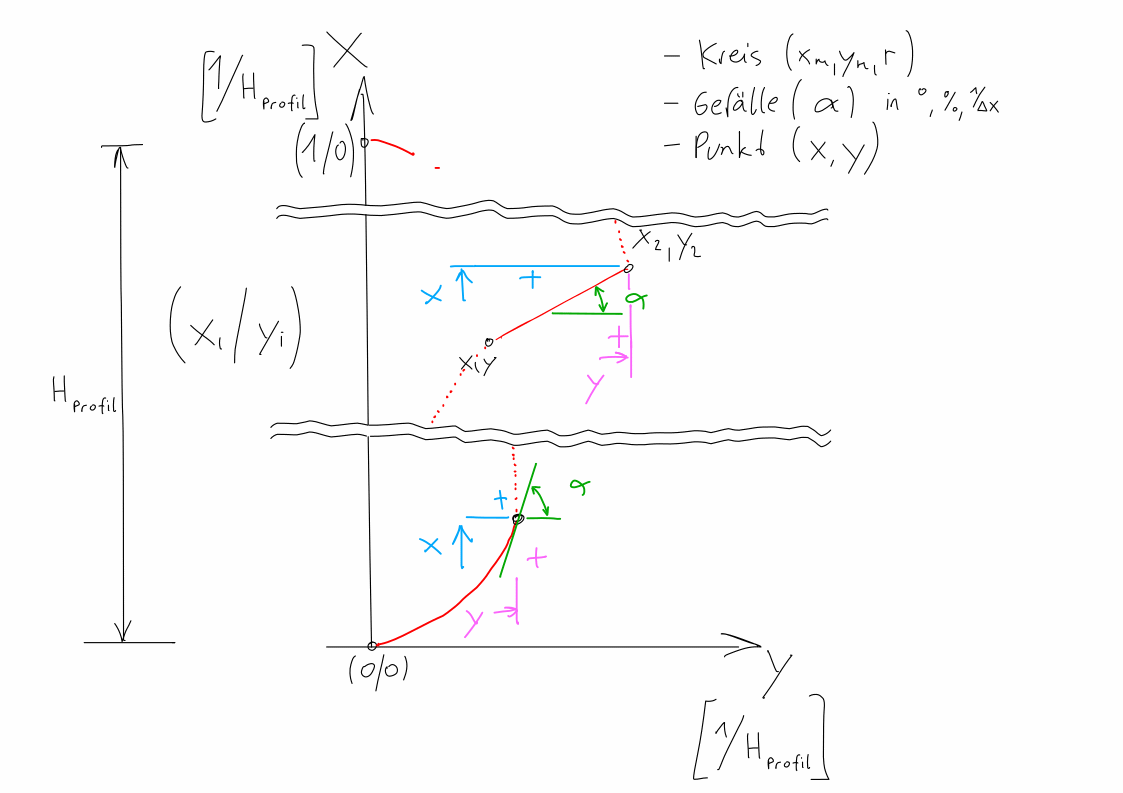 [1/H Profil] X
- Kreis (xm, yn, r)
- Gefälle (α) in °, %, 1/Δx
- Punkt (X, Y)
(1/0)
X2, Y2
X
+
α
+
Y
X, Y
(Xi / Yi)
H Profil
+
α
X
+
Y
(0/0)
Y
[1/H Profil]